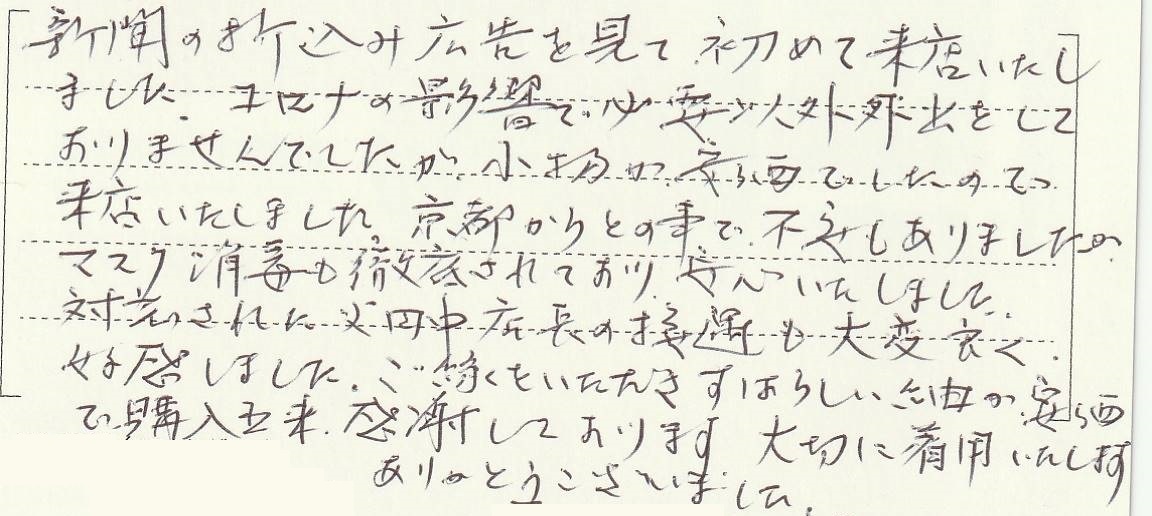 新聞の折込み広告を見て初めて来店いたし
ました。コロナの影響で必要以外外出をして
おりませんでしたが、小物が安価でしたので
来店いたしました。京都からとの事で不安もありましたが
マスク消毒も徹底されており安心いたしました。
対応された田中店長の接遇も大変良く、
好感しました。ご縁をいただきすばらしい紬が安価
で購入出来感謝しております 大切に着用いたします
ありがとうございました。